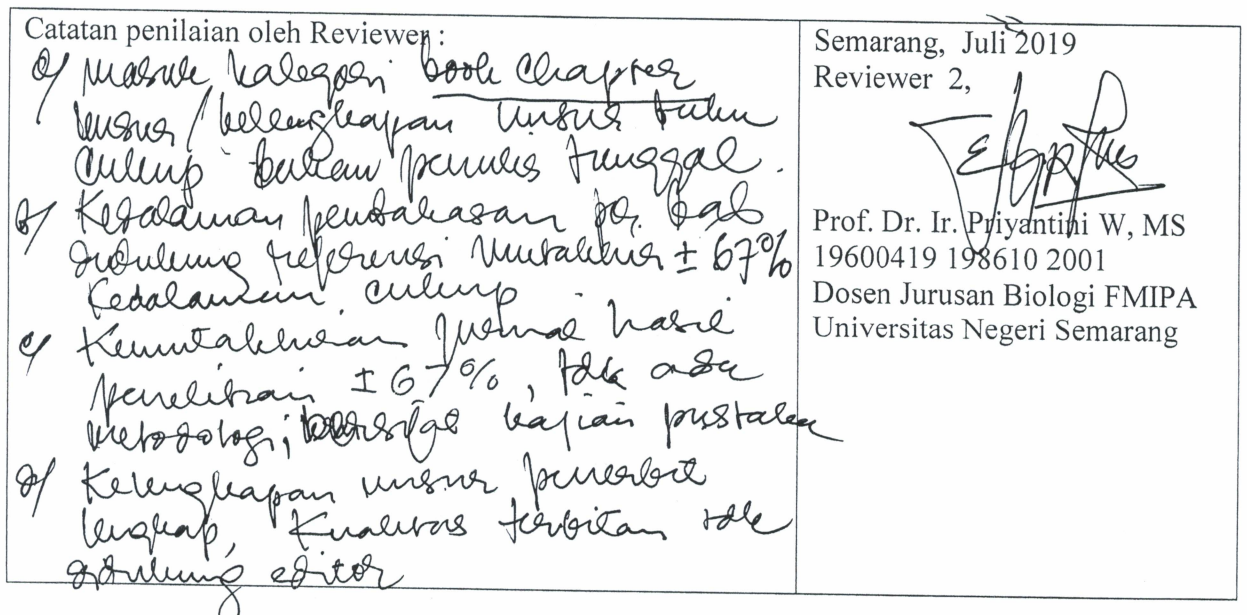 Catatan penilaian oleh Reviewer :
a/ Masuk kategori book chapter
unsur / kelengkapan unsur buku
cukup bukan penulis tunggal.
b/ Kedalaman pembahasan per bab
didukung referensi mutakhir ± 67%
Kedalaman cukup
c/ Kemutakhiran jurnal hasil
penelitian ± 67%, tdk ada
metodologi, bersifat kajian pustaka
d/ Kelengkapan unsur penerbit
lengkap, Kualitas terbitan tdk
didukung editor
Semarang, Juli 2019
Reviewer 2,
Prof. Dr. Ir. Priyantini W, MS
19600419 198610 2001
Dosen Jurusan Biologi FMIPA
Universitas Negeri Semarang